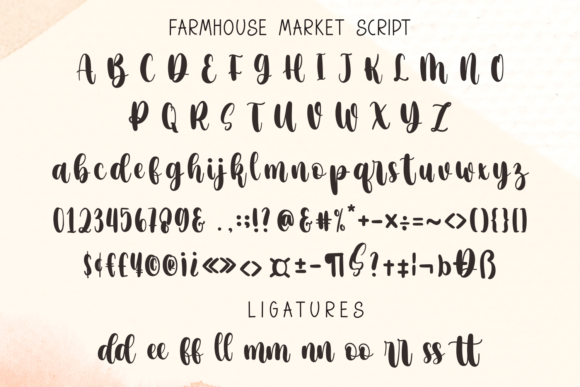 FARMHOUSE MARKET SCRIPT
A B C D E F G H I J K L M N O
P Q R S T U V W X Y Z
abcdefghijklmnopqrstuvwxyz
0123456789& .,:;!? @&#%*+-x÷=~<>(){}()
$¢€£¥©®¡¿«»<>¤±-¶§?†‡¦¬
LIGATURES
dd ee ff ll mm nn oo rr ss tt